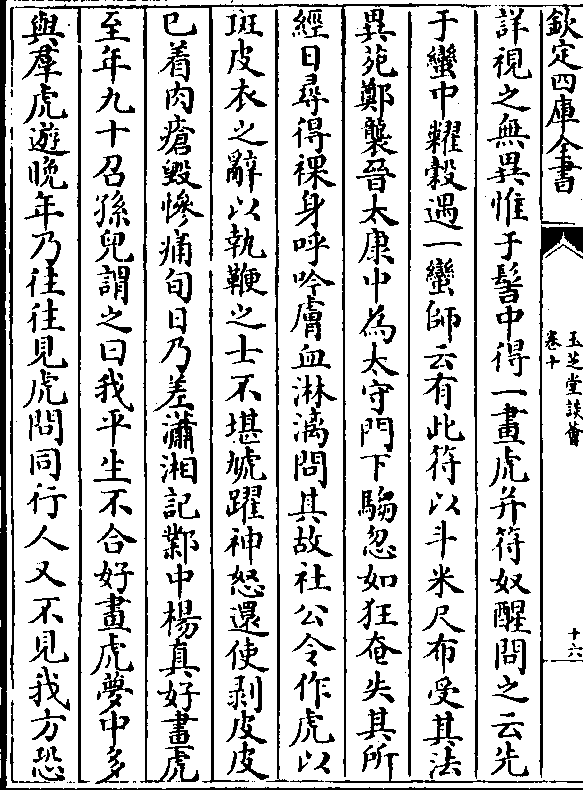 欽定四庫全書
玉芝堂談薈
卷十
十六
詳視之無異惟于髻中得一畫虎并符奴醒問之云先
于蠻中糴穀遇一蠻師云有此符以斗米尺布受其法
異苑鄭襲晉太康中為太守門下騶忽如狂奄失其所
經日尋得裸身呼吟膚血淋漓問其故社公令作虎以
斑皮衣之辭以執鞭之士不堪虓躍神怒還使剥皮皮
已着肉瘡毀慘痛旬日乃差瀟湘記鄴中楊真好畫虎
至年九十召孫兒謂之曰我平生不合好畫虎夢中多
與羣虎遊晩年乃往往見虎問同行人又不見我方恐